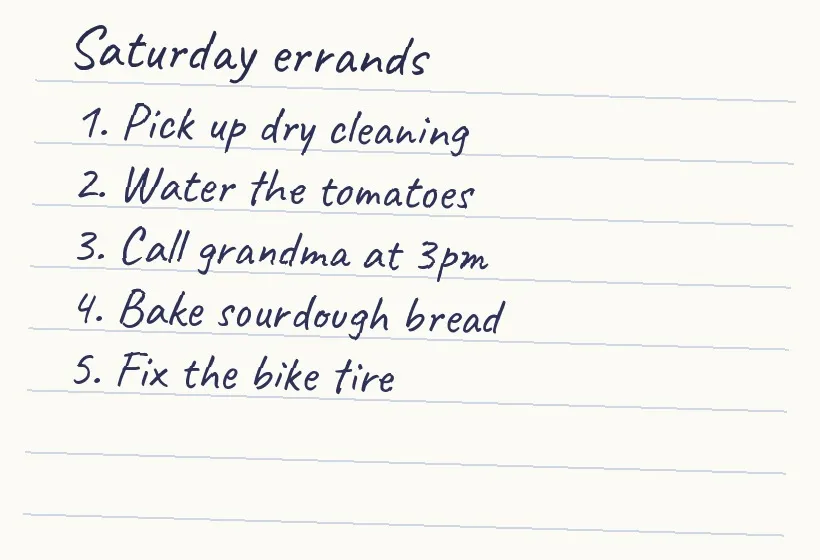 Saturday errands
1. Pick up dry cleaning
2. Water the tomatoes
3. Call grandma at 3pm
4. Bake sourdough bread
5. Fix the bike tire